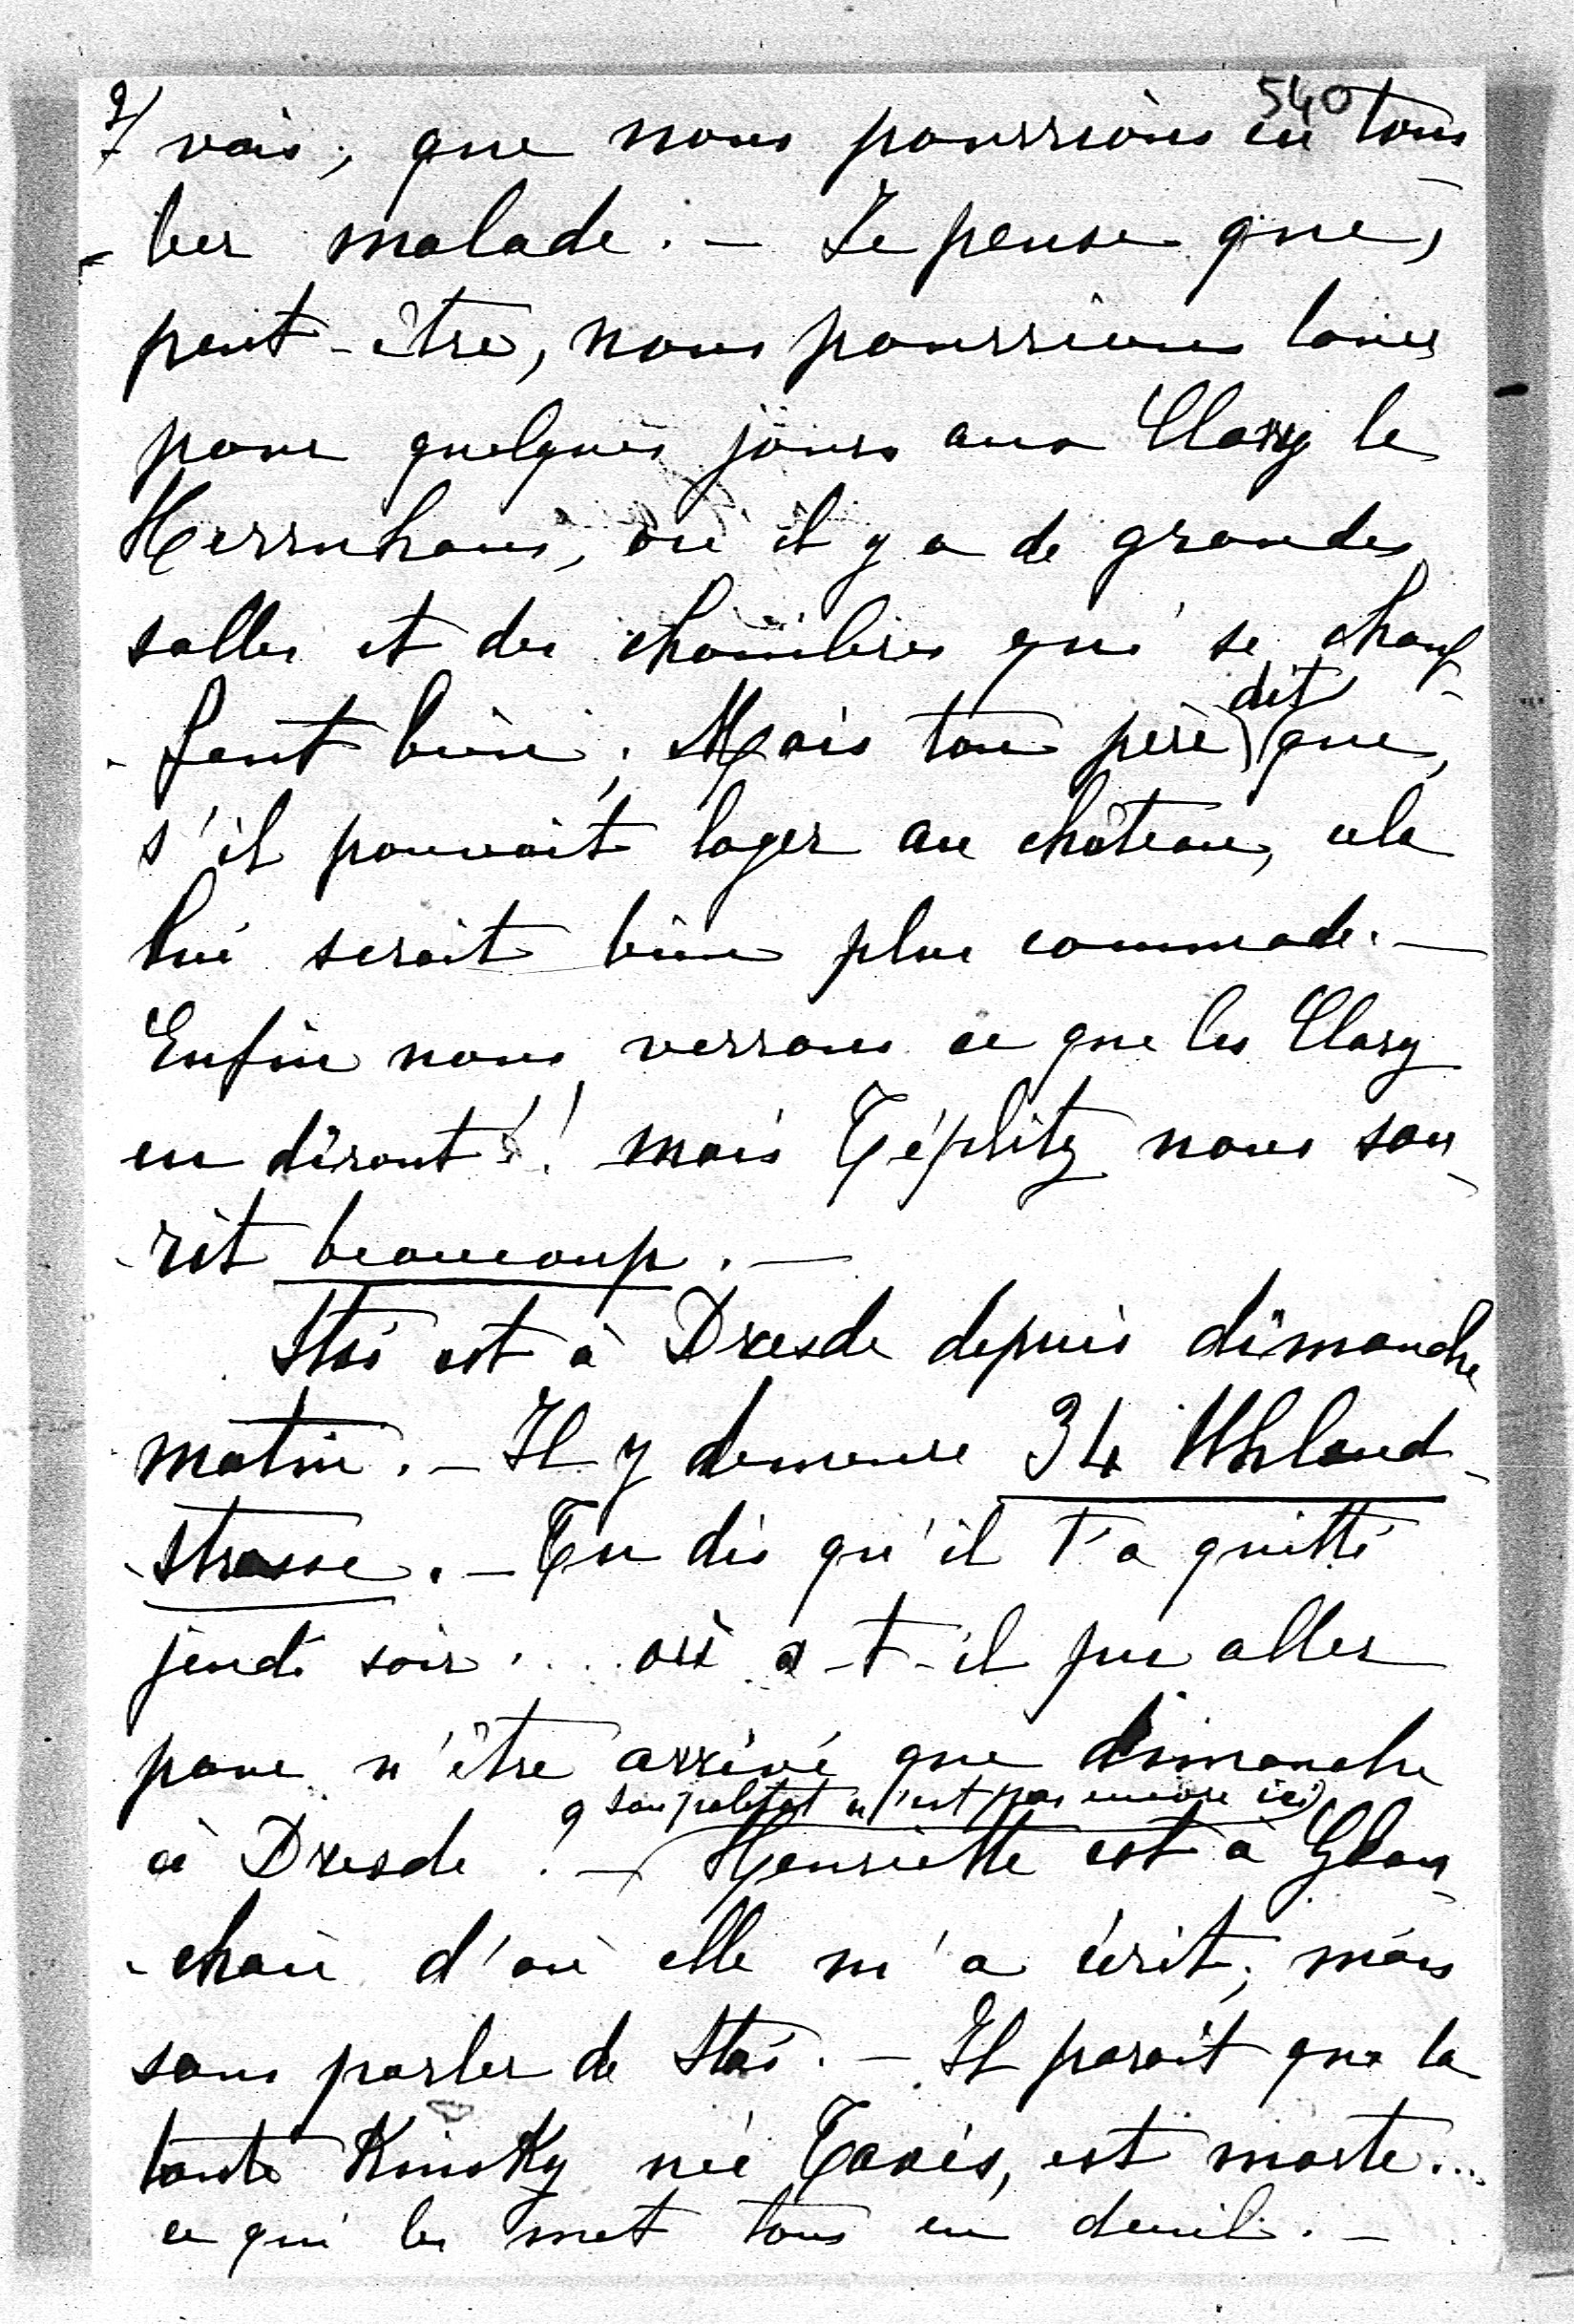 540
2/ vais; que nous pourrions en tom
-ber malade. — Je pense que,
peut-être, nous pourrions louer
pour quelques jours aux Clary le
Herrnhaus, où il y a de grandes
salles et des chambres qui se chauf-
-fent bien; Mais ton père dit que,
s'il pouvait loger au château, cela
lui serait bien plus commode. —
Enfin nous verrons ce que les Clary
en diront!! mais Téplitz nous sou-
-rit beaucoup. —
Stas est à Dresde depuis dimanche
matin. — Il y demeure 34 Uhland-
-strasse. — Tu dis qu'il t'a quitté
jeudi soir... où a-t-il pu aller
pour n'être arrivé que dimanche
à Dresde? — (son paletot n'est pas encore ici)
Henriette est à Glau-
-chau d'où elle m'a écrit; mais
sans parler de Stas. — Il parait que la
tante Kinsky née Taxis, est morte...
ce qui les met tous en deuil. —